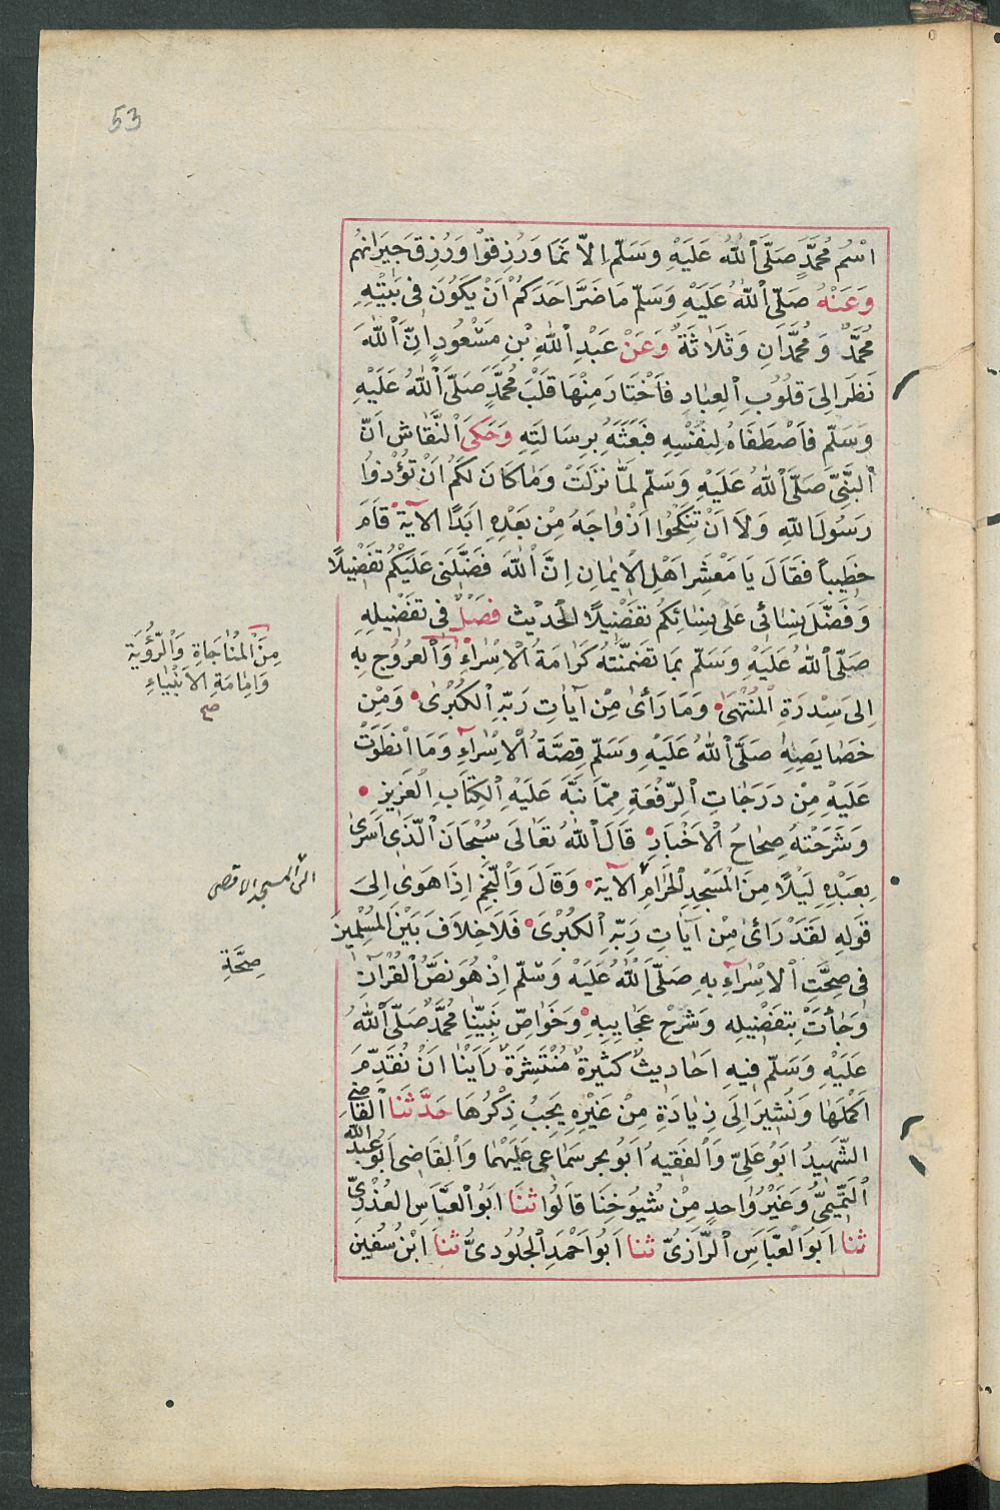 53
اسْمُ مُحَمَّدٍ صَلَّى اللهُ عَلَيْهِ وَسَلَّمَ اِلَّا نَمَا وَرُزِقُوا وَرُزِقَ جِيرَانُهُمْ
وَعَنْهُ صَلَّى اللهُ عَلَيْهِ وَسَلَّمَ مَا ضَرَّ اَحَدَكُمْ اَنْ يَكُونَ فِى بَيْتِهِ
مُحَمَّدٌ وَمُحَمَّدَانِ وَثَلَاثَةٌ وَعَنْ عَبْدِ اللهِ بْنِ مَسْعُودٍ اِنَّ اللهَ
نَظَرَ اِلَى قُلُوبِ الْعِبَادِ فَاخْتَارَ مِنْهَا قَلْبَ مُحَمَّدٍ صَلَّى اللهُ عَلَيْهِ
وَسَلَّمَ فَاصْطَفَاهُ لِنَفْسِهِ فَبَعَثَهُ بِرِسَالَتِهِ وَحَكَى النَّقَّاشُ اَنَّ
النَّبِىَّ صَلَّى اللهُ عَلَيْهِ وَسَلَّمَ لَمَّا نَزَلَتْ وَمَا كَانَ لَكُمْ اَنْ تُؤْذُوا
رَسُولَ اللهِ وَلَا اَنْ تَنْكِحُوا اَزْوَاجَهُ مِنْ بَعْدِهِ اَبَدًا الآيَةَ قَامَ
خَطِيبًا فَقَالَ يَا مَعْشَرَ اَهْلِ الْاِيمَانِ اِنَّ اللهَ فَضَّلَنِى عَلَيْكُمْ تَفْضِيلًا
وَفَضَّلَ نِسَائِى عَلَى نِسَائِكُمْ تَفْضِيلًا الْحَدِيثَ فَصْلٌ فِى تَفْضِيلِهِ
صَلَّى اللهُ عَلَيْهِ وَسَلَّمَ بِمَا تَضَمَّنَتْهُ كَرَامَةُ الْاِسْرَاءِ وَالْعُرُوجِ بِهِ
مِنَ الْمُنَاجَاةِ وَالرُّؤْيَةِ
وَاِمَامَةِ الْاَنْبِيَاءِ
صح
اِلَى سِدْرَةِ الْمُنْتَهَى وَمَا رَأَى مِنْ آيَاتِ رَبِّهِ الْكُبْرَى وَمِنْ
خَصَايِصِهِ صَلَّى اللهُ عَلَيْهِ وَسَلَّمَ قِصَّةُ الْاِسْرَاءِ وَمَا انْطَوَتْ
عَلَيْهِ مِنْ دَرَجَاتِ الرِّفْعَةِ مِمَّا نَبَّهَ عَلَيْهِ الْكِتَابُ الْعَزِيزُ
وَشَرَحَتْهُ صِحَاحُ الْاَخْبَارِ قَالَ اللهُ تَعَالَى سُبْحَانَ الَّذِى اَسْرَى
بِعَبْدِهِ لَيْلًا مِنَ الْمَسْجِدِ الْحَرَامِ الآيَةَ وَقَالَ وَالنَّجْمِ اِذَا هَوَى اِلَى
الى المسجد الاقصى
قَوْلِهِ لَقَدْ رَأَى مِنْ آيَاتِ رَبِّهِ الْكُبْرَى فَلَا خِلَافَ بَيْنَ الْمُسْلِمِينَ
فِى صِحَّتِ الْاِسْرَاءِ بِهِ صَلَّى اللهُ عَلَيْهِ وَسَلَّمَ اِذْ هُوَ نَصُّ الْقُرْآنِ
صِحَّةِ
وَجَاءَتْ بِتَفْضِيلِهِ وَشَرْحِ عَجَايِبِهِ وَخَوَاصِّ نَبِيِّنَا مُحَمَّدٍ صَلَّى اللهُ
عَلَيْهِ وَسَلَّمَ فِيهِ اَحَادِيثُ كَثِيرَةٌ مُنْتَشِرَةٌ رَاَيْنَا اَنْ نُقَدِّمَ
اَكْمَلَهَا وَنُشِيرَ اِلَى زِيَادَةٍ مِنْ غَيْرِهِ يَجِبُ ذِكْرُهَا حَدَّثَنَا الْقَاضِى
الشَّهِيدُ اَبُو عَلِىٍّ وَالْفَقِيهُ اَبُو بحر سَمَاعِى عَلَيْهِمَا وَالْقَاضِى اَبُو عَبْدِ اللهِ
التَّمِيمِىُّ وَغَيْرُ وَاحِدٍ مِنْ شُيُوخِنَا قَالُوا ثَنَا اَبُو الْعَبَّاسِ الْعُذْرِىُّ
ثنا اَبُو الْعَبَّاسِ الرَّازِىُّ ثنا اَبُو اَحْمَدَ الْجُلُودِىُّ ثنا ابْنُ سُفْيٰنَ